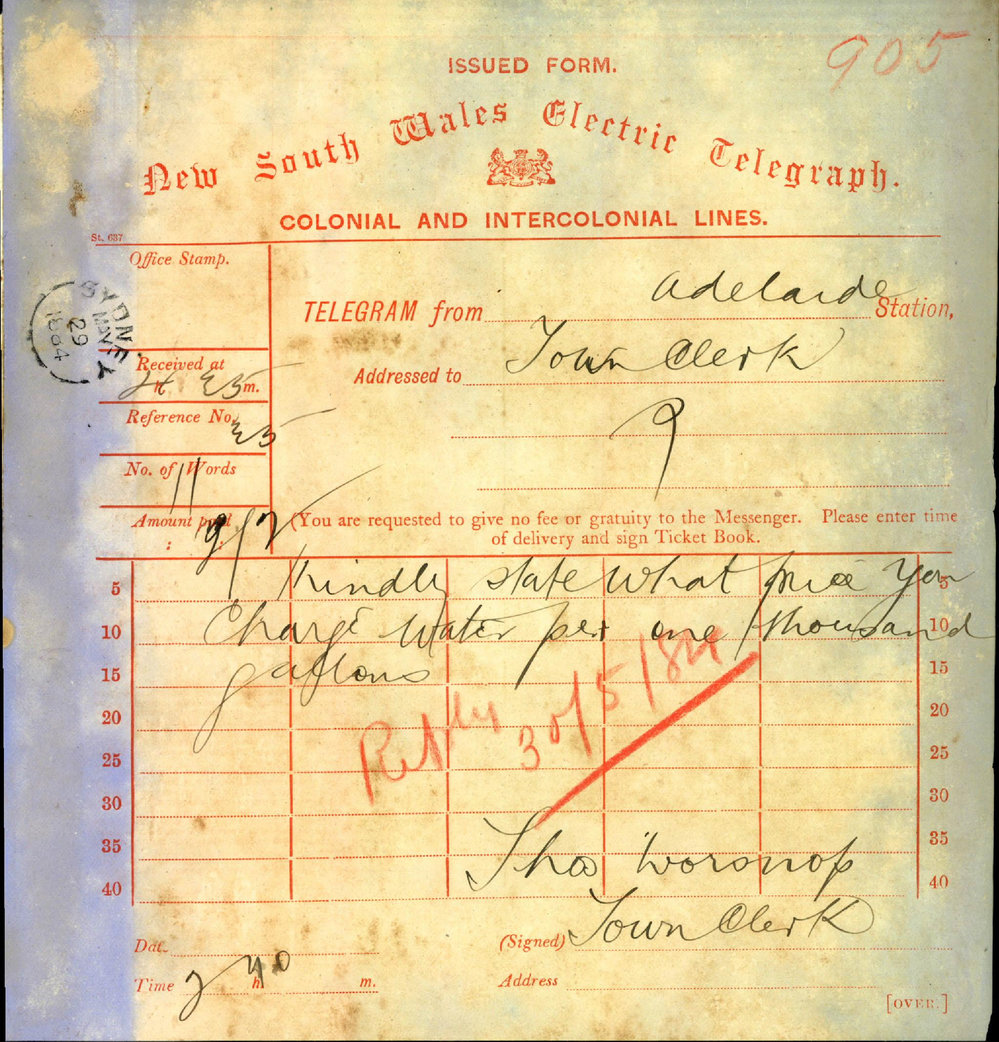 905
ISSUED FORM.
New South Wales Electric Telegraph.
COLONIAL AND INTERCOLONIAL LINES.
St. 637
Office Stamp.
SYDNEY
MAY
29
1884
TELEGRAM from Adelaide Station,
Addressed to Town Clerk
Received at
h m.
Reference No.
35
No. of Words
11
Amount paid
:
(You are requested to give no fee or gratuity to the Messenger. Please enter time
of delivery and sign Ticket Book.
5 Kindly state what price you 5
10 Charge Water per one thousand 10
15 gallons 15
20 20
25 25
30 30
35 35
40 40
Reply 30/5/84
Thos Worsnop
Town Clerk
Date
(Signed)
Time 2 h 40 m.
Address
[OVER.]